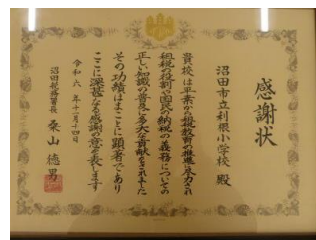 感謝状
沼田市立利根小学校 殿
貴校は平素から租税教育の推進に尽力され
租税の役割や国民の納税の義務についての
正しい知識の普及に多大な貢献をされました
その功績はまことに顕著であり
ここに深甚なる感謝の意を表します
令和六年十一月十四日
沼田税務署長 桑山徳男